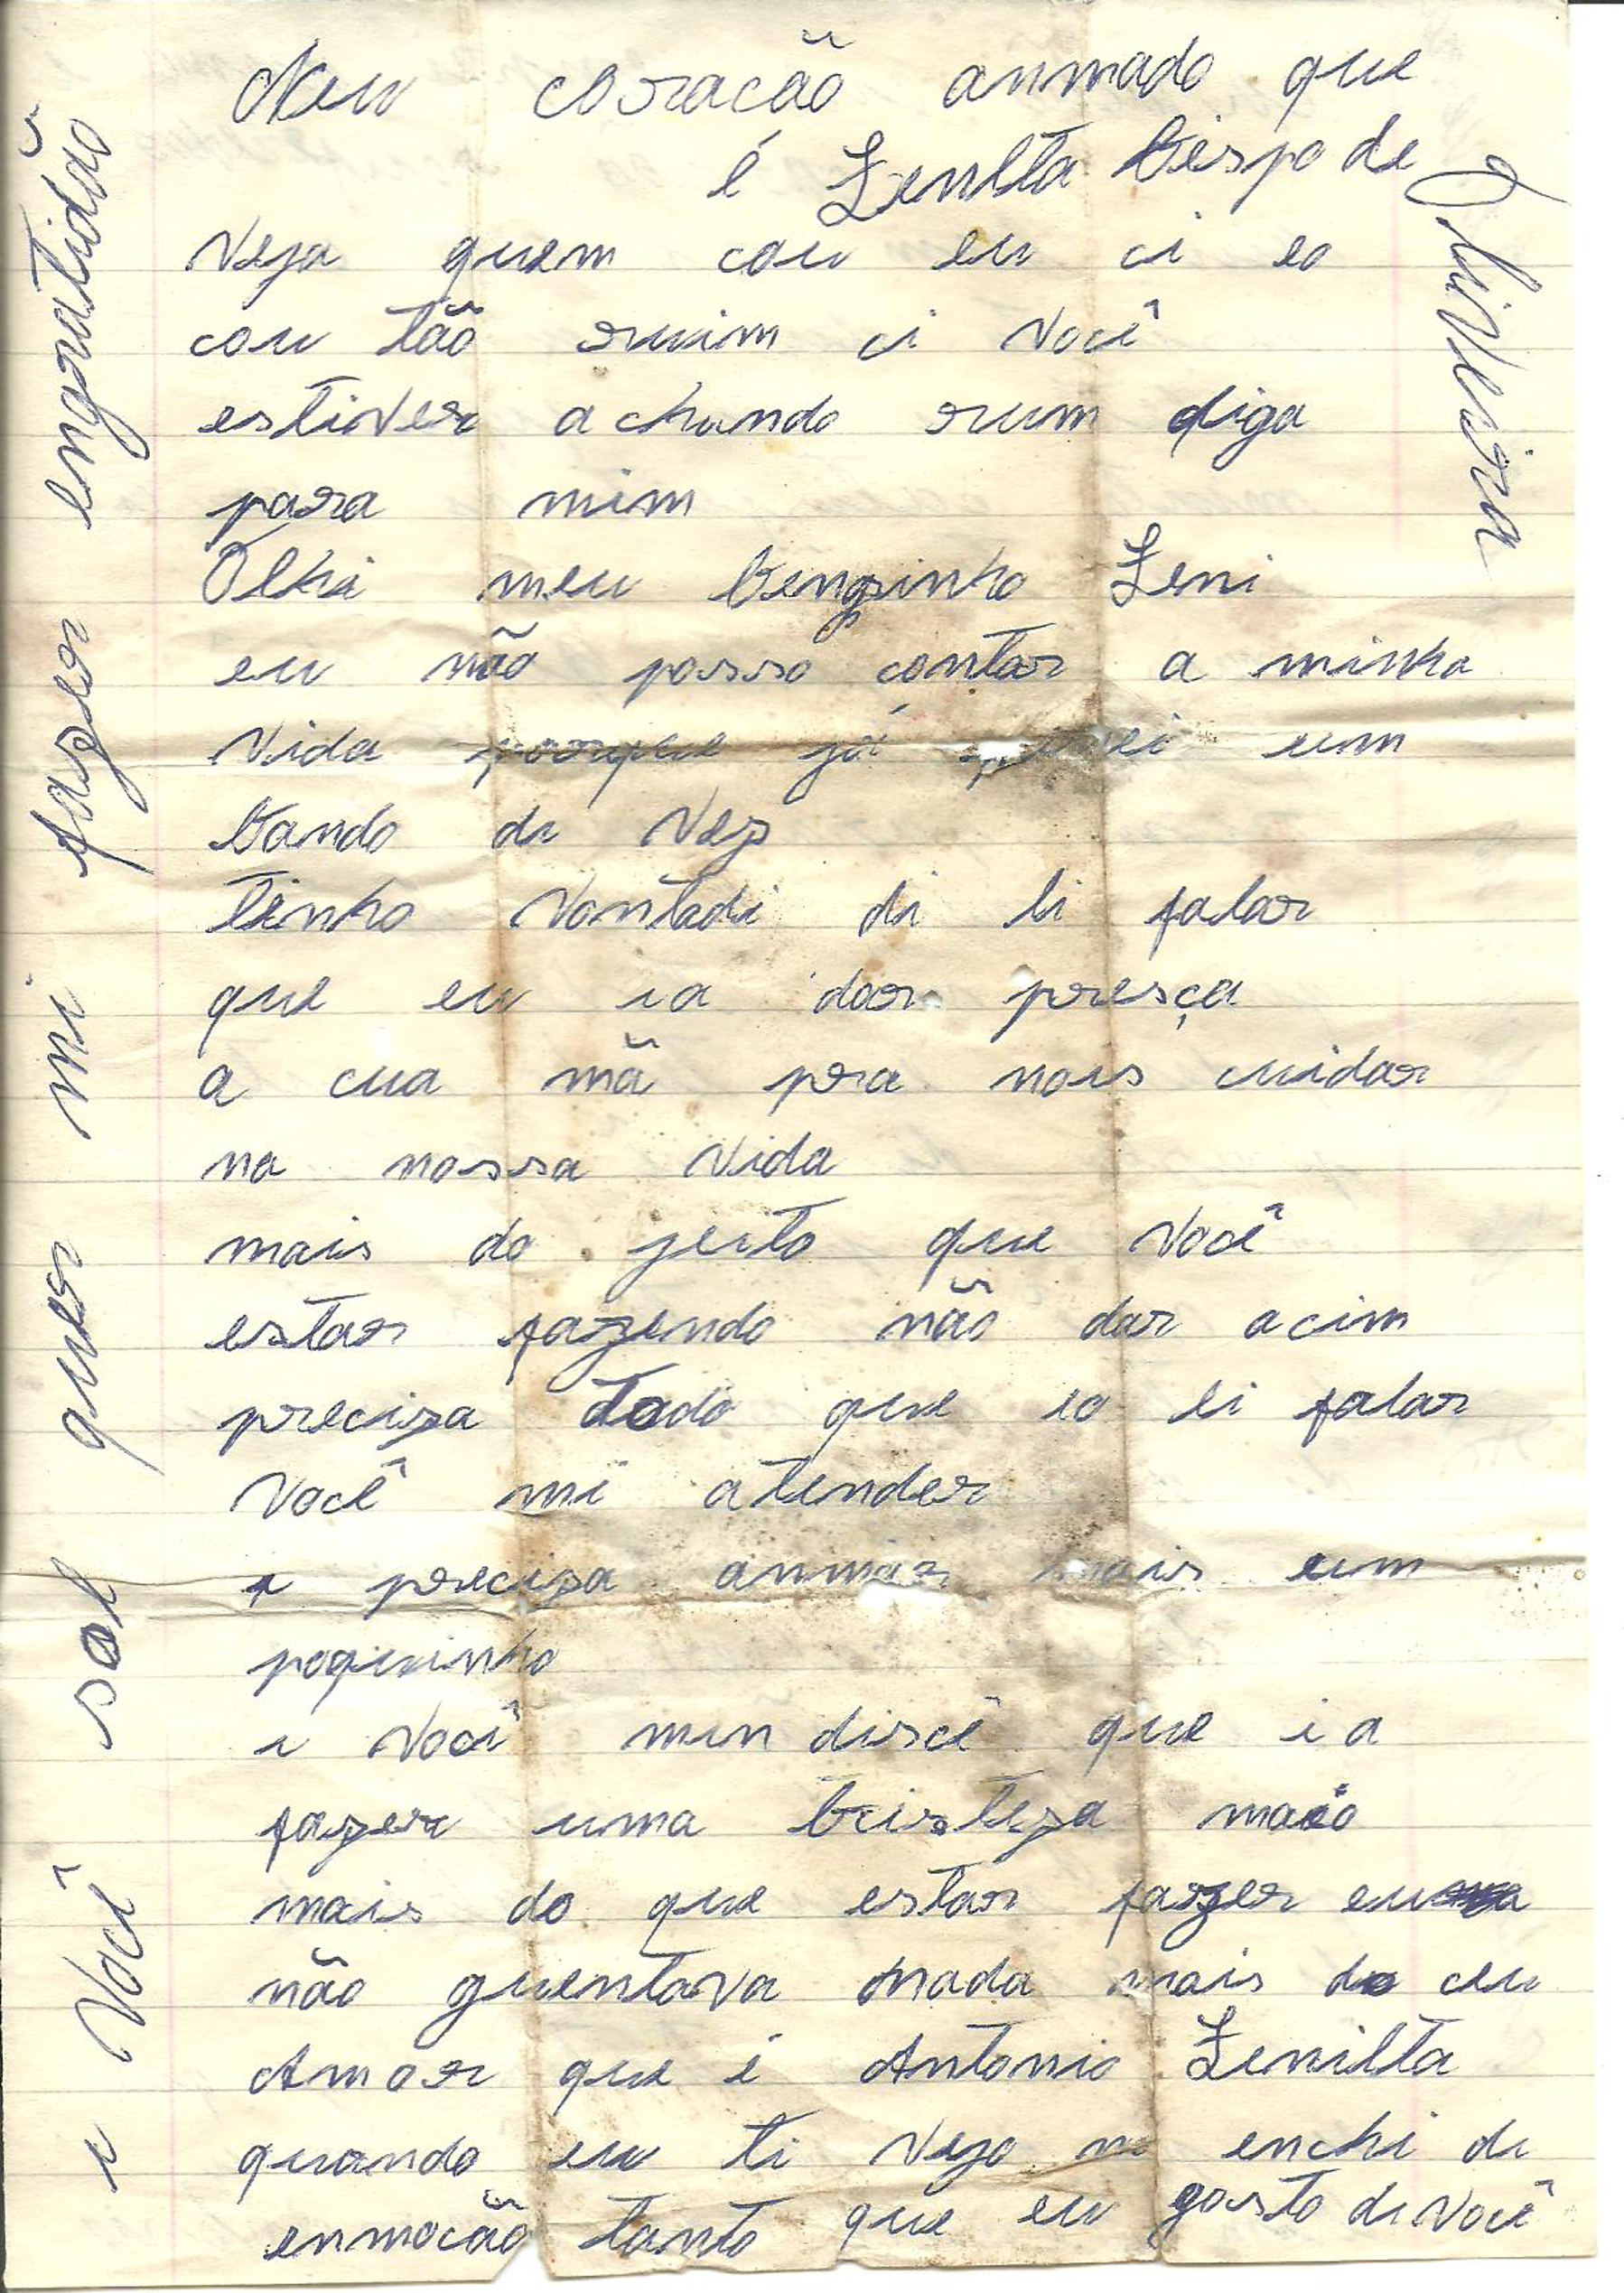 Meu coracão anmado que
é Zenilta bispo de
Oliveira
Veja quem cou eu ci eo
cou tão ruim ci você
estiver achando rum diga
para mim
Olhi meu bengzinho Zeni
eu não posso contar a minha
vida porque já pensei um
bando di vez
tinho vontadi di li falar
que eu ia dar presça
a cua mã pra nois cuidar
na nossa vida
mais do jeito que você
estar fazendo não dar acim
preciza todo que eo li falar
você mi atender
i preciza anmar mais um
poquinho
i você min discê que ia
fazer uma tristeza maió
mais do que estar fazer eu
não guentava nada mais do ceu
Amor que é Antonio Zenilta
quando eu ti vejo mi enchi di
enmocão tanto que eu gosto di você
i você sol quer mi fazer engratidão